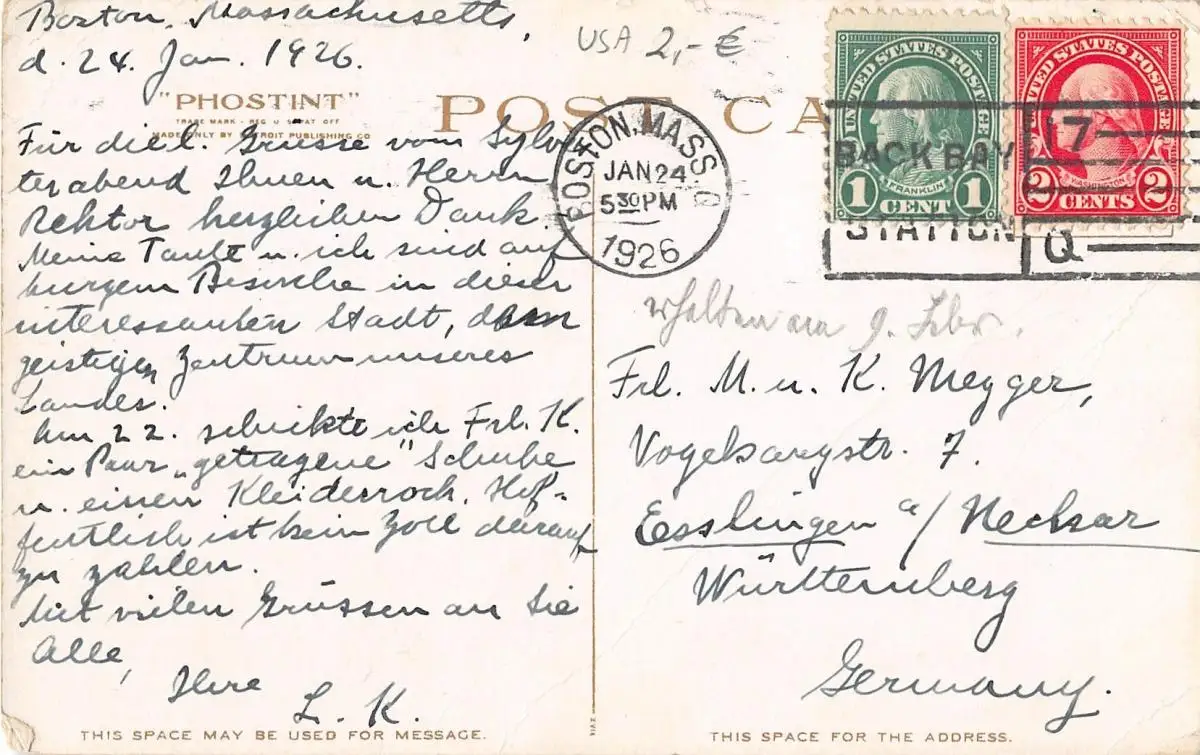 Boston, Massachusetts,
d. 24. Jan. 1926.
USA 2,- €
"PHOSTINT"
TRADE MARK - REG U S PAT OFF
MADE ONLY BY DETROIT PUBLISHING CO
POST CA
Für die l. Grüsse vom Sylves
terabend Ihnen u. Herrn
Rektor herzlichen Dank.
Meine Tante u. ich sind auf
kurzem Besuche in dieser
interessanten Stadt, dem
geistigen Zentrum unseres
Landes.
Am 22. schickte ich Frl. K.
ein Paar "getragene" Schuhe
u. einen Kleiderrock. Hof-
fentlich ist kein Zoll darauf
zu zahlen.
Mit vielen Grüssen an Sie
Alle,
Ihre
L. K.
THIS SPACE MAY BE USED FOR MESSAGE.
BOSTON, MASS. Q
JAN 24
5 30 PM
1926
UNITED STATES POSTAGE
FRANKLIN
1 CENT 1
UNITED STATES POSTAGE
WASHINGTON
2 CENTS 2
'7
BACK BAY
STATION
Q
erhalten am 9. Febr.
Frl. M. u. K. Mezger,
Vogelsangstr. 7.
Esslingen a/Neckar
Württemberg
Germany.
THIS SPACE FOR THE ADDRESS.